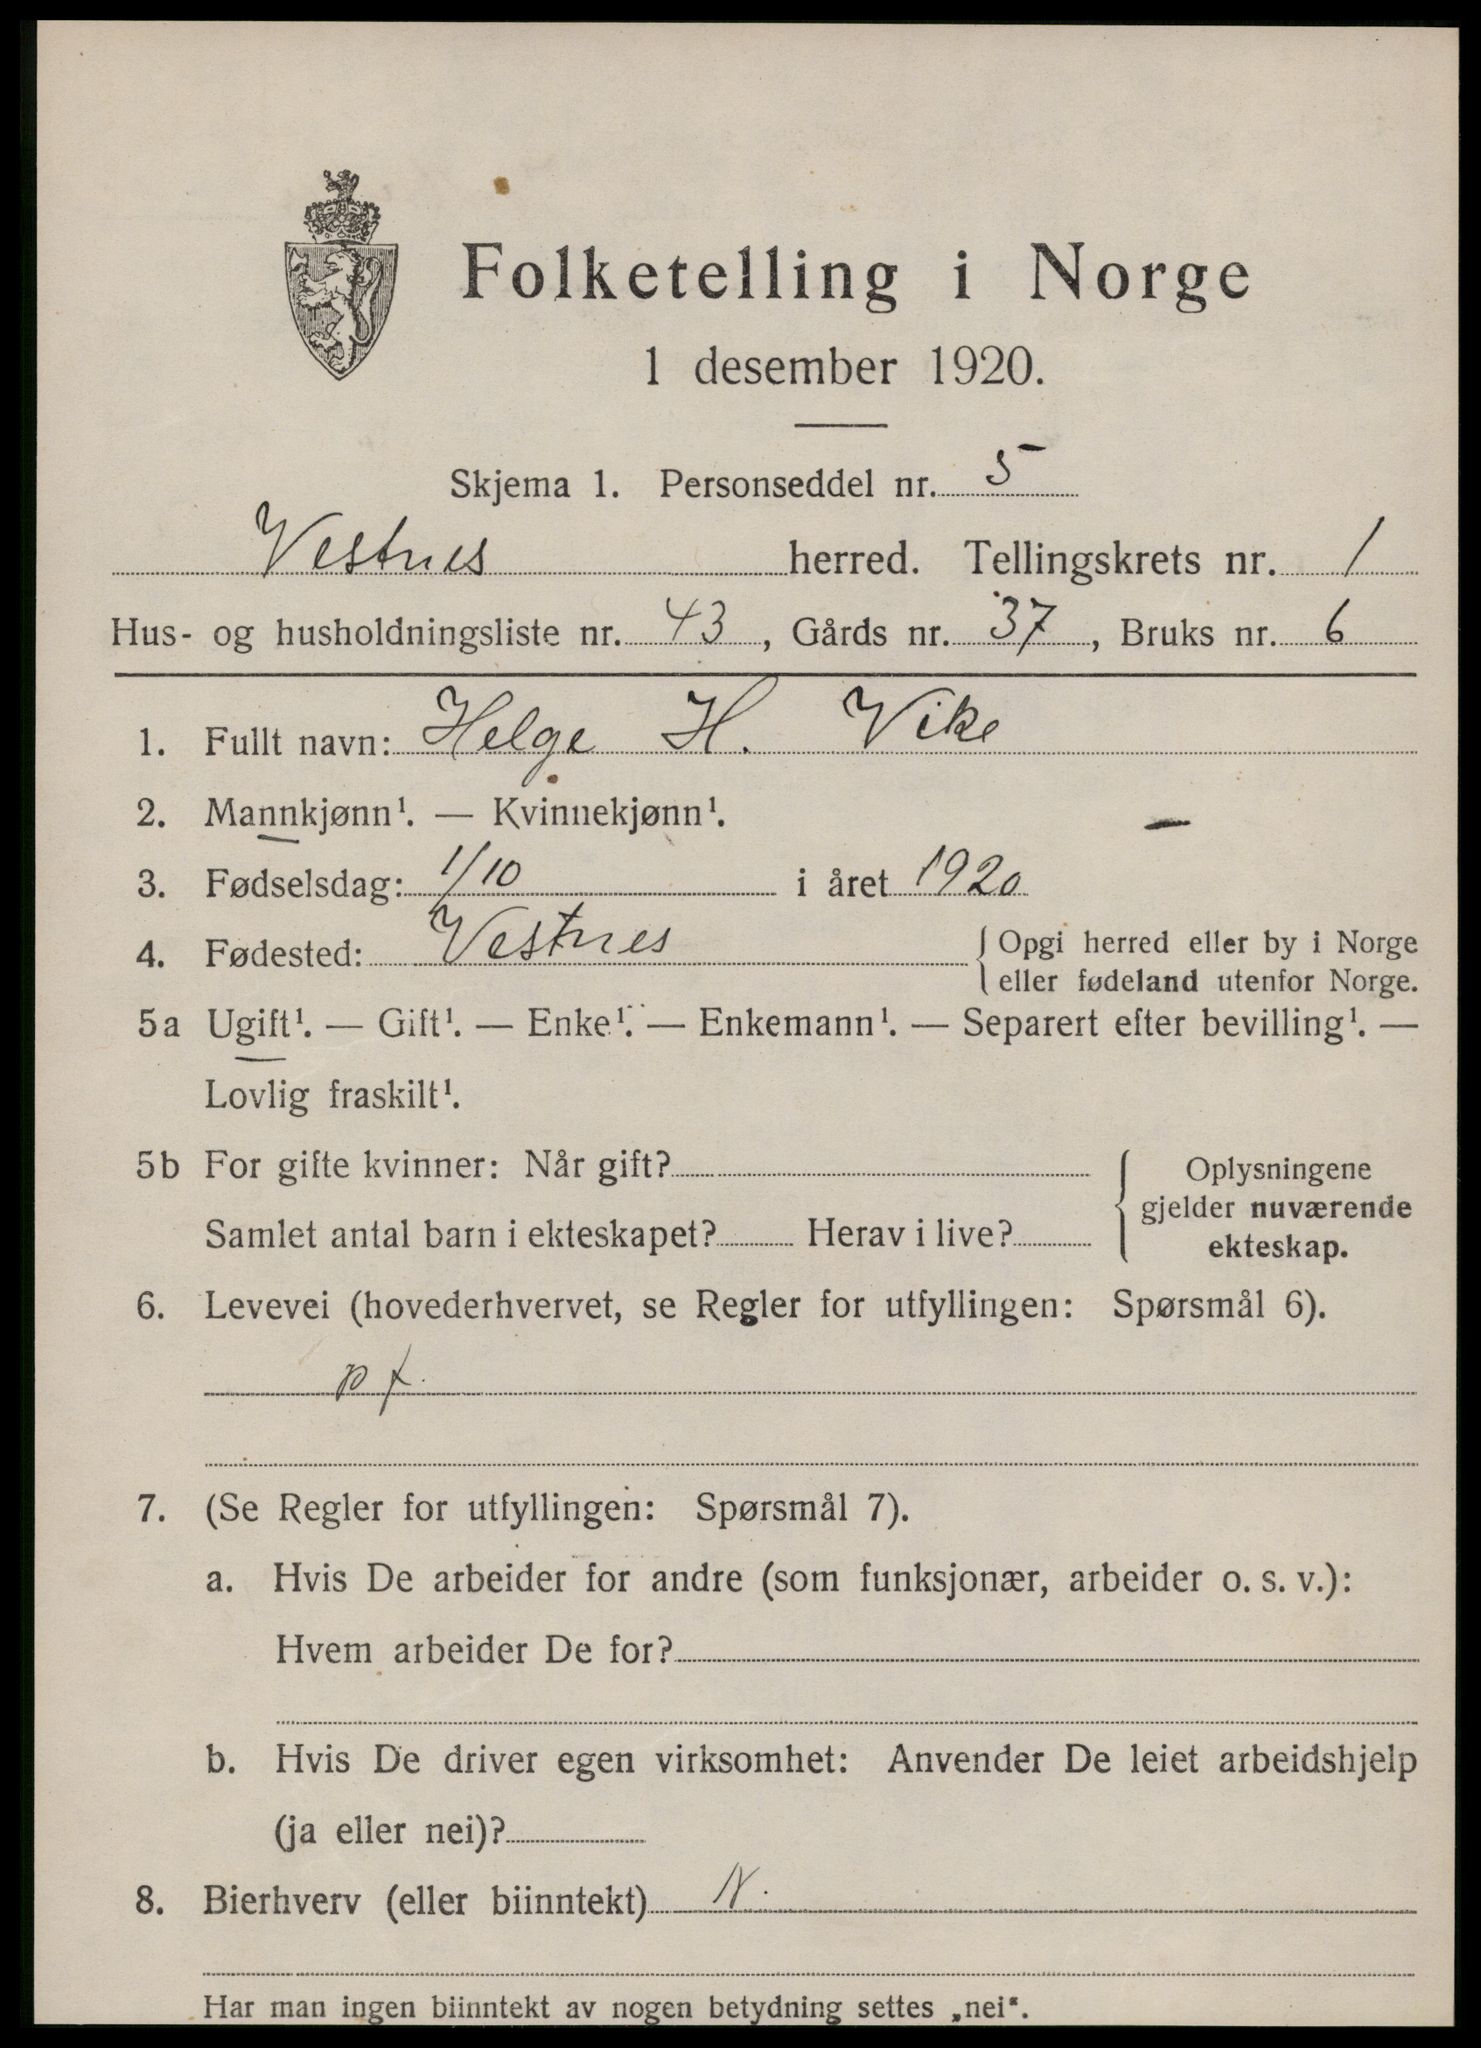 Folketelling i Norge
1 desember 1920.
Skjema 1. Personseddel nr. 5
Vestnes herred. Tellingskrets nr. 1
Hus- og husholdningsliste nr. 43, Gårds nr. 37, Bruks nr. 6
1. Fullt navn: Helge H. Vike
2. Mannkjønn¹. — Kvinnekjønn¹. —
3. Fødselsdag: 1/10 i året 1920
4. Fødested: Vestnes { Opgi herred eller by i Norge
eller fødeland utenfor Norge.
5a Ugift¹. — Gift¹. — Enke¹. — Enkemann¹. — Separert efter bevilling¹. —
Lovlig fraskilt¹.
5b For gifte kvinner: Når gift?
Samlet antal barn i ekteskapet? Herav i live?
Oplysningene
gjelder nuværende
ekteskap.
6. Levevei (hovederhvervet, se Regler for utfyllingen: Spørsmål 6).
p f.
7. (Se Regler for utfyllingen: Spørsmål 7).
a. Hvis De arbeider for andre (som funksjonær, arbeider o. s. v.):
Hvem arbeider De for?
b. Hvis De driver egen virksomhet: Anvender De leiet arbeidshjelp
(ja eller nei)?
8. Bierhverv (eller biinntekt) N.
Har man ingen biinntekt av nogen betydning settes „nei".